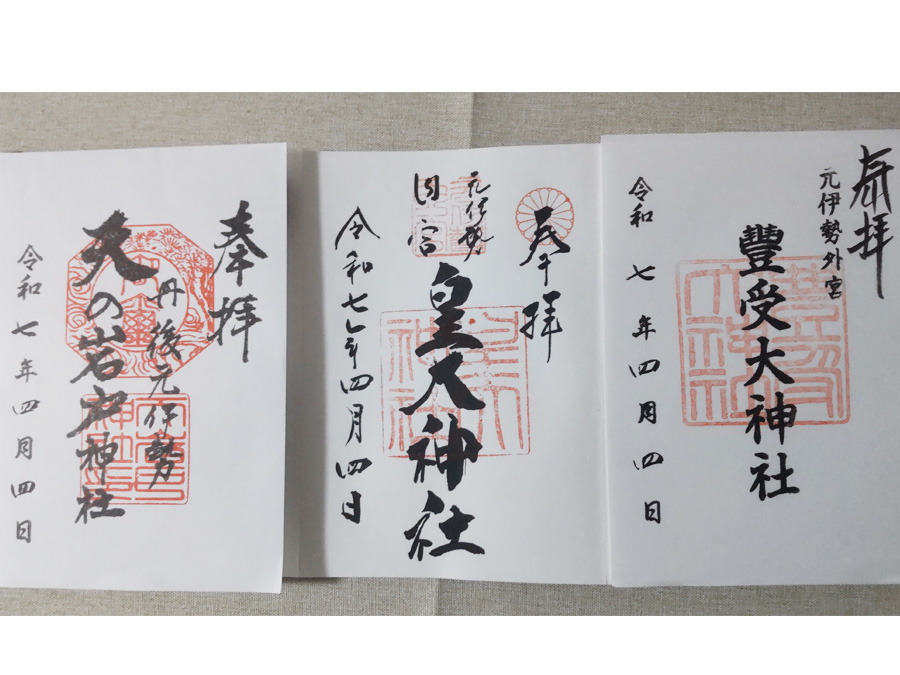 奉拝
丹後元伊勢
天の岩戸神社
令和七年四月四日
奉拝
元伊勢
内宮
皇大神社
令和七年四月四日
奉拝
元伊勢外宮
豐受大神社
令和七年四月四日